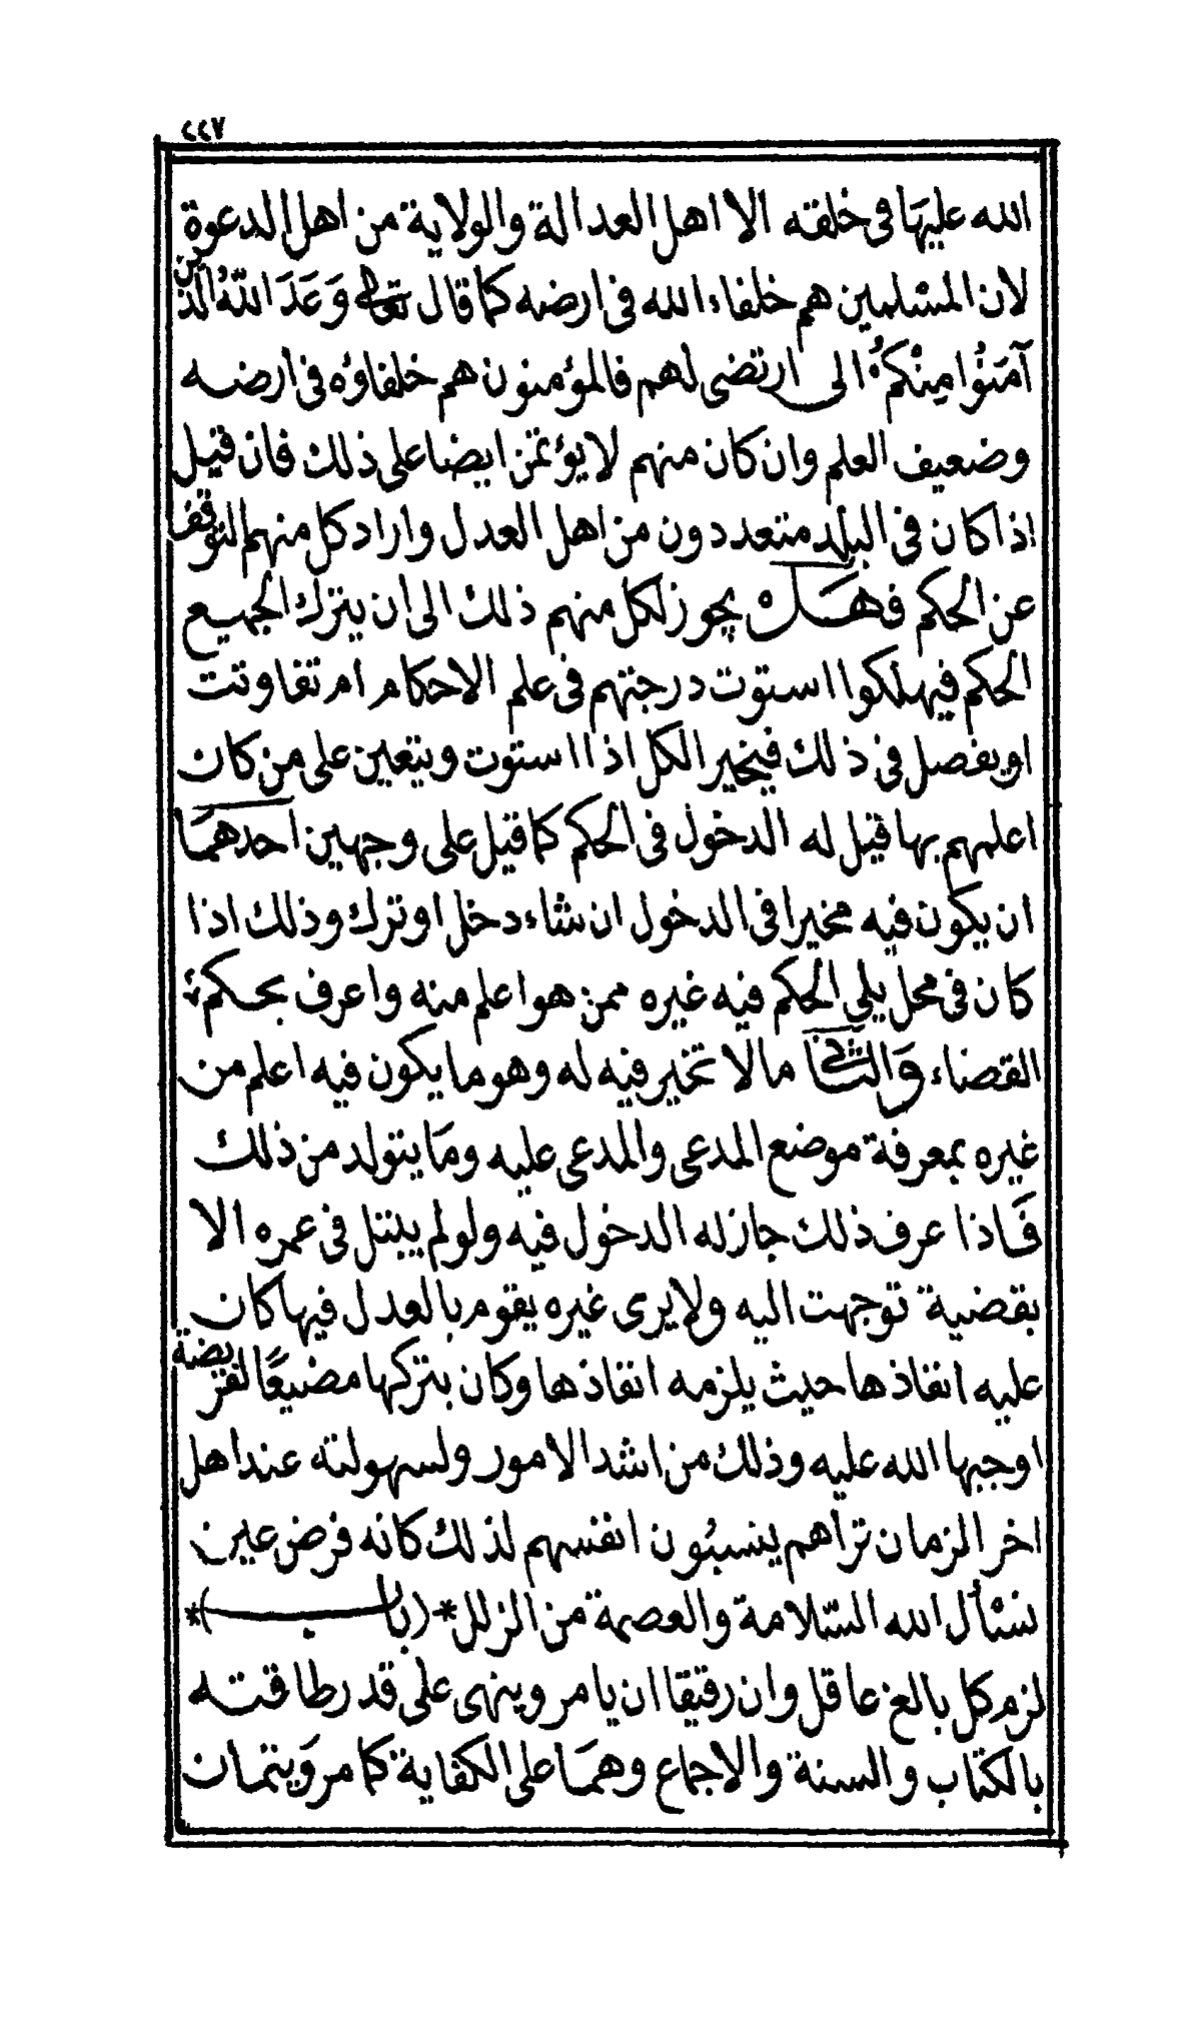 ٢٢٧
الله عليها فى خلقته الا اهل العدالة والولاية من اهل الدعوة
لان المسْلمين هم خلفاء الله فى ارضه كما قال تعالى وَعَدَ اللّهُ الذين
آمَنُوُا مِنْكمُ الى ارتضى لهم فالمؤمنون هم خلفاؤه فى ارضه
وضعيف العلم وان كان منهم لا يؤتمن ايضا على ذلك فان قيل
اذا كان فى البلد متعددون من اهل العدل واراد كل منهم التوقف
عن الحكم فهَلْ يجوز لكل منهم ذلك الى ان يترك الجميع
الحكم فيهلكوا استوت درجتهم فى علم الاحكام ام تفاوتت
او يفصل فى ذلك فيخير الكل اذا استوت ويتعين على من كان
اعلمهم بها قيل له الدخول فى الحكم كما قيل على وجهين احدهمَا
ان يكون فيه مخيرا فى الدخول ان شاء دخل او ترك وذلك اذا
كان فى محل يلي الحكم فيه غيره ممن هو اعلم منه واعرف بحكم
القضاء وَالثانى مالا تخير فيه له وهو ما يكون فيه اعلم من
غيره بمعرفة موضع المدعى والمدعى عليه ومَا يتولد من ذلك
فَاذا عرف ذلك جاز له الدخول فيه ولو لم يبتل فى عمره الا
بقضية توجهت اليه ولا يرى غيره يقوم بالعدل فيها كان
عليه انفاذها حيث يلزمه انفاذها وكان بتركها مضيعًا لفريضة
اوجبها الله عليه وذلك من اشد الامور ولسهولته عند اهل
اخر الزمان تراهم ينسبُون انفسهم لذلك كانه فرض عين
نسْأل الله السّلامة والعصمة من الزلل * (باب) *
لزم كل بالغ عاقل وان رقيقا ان يامر وينهى على قدر طاقته
بالكتاب والسنة والاجماع وهمَا على الكفاية كما مر وَيتمان